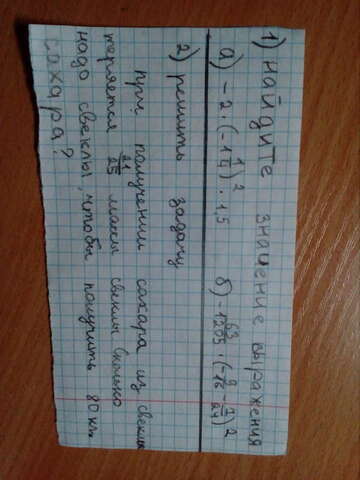 1) найдите значение выражения
а) -2·(-1 1/4)²·1,5 б) -1 63/1205·(-9/16-7/24)²
2) решить задачу
при получении сахара из свеклы
теряется 21/25 массы свеклы. Сколько
надо свеклы, чтобы получить 80 кг
сахара?